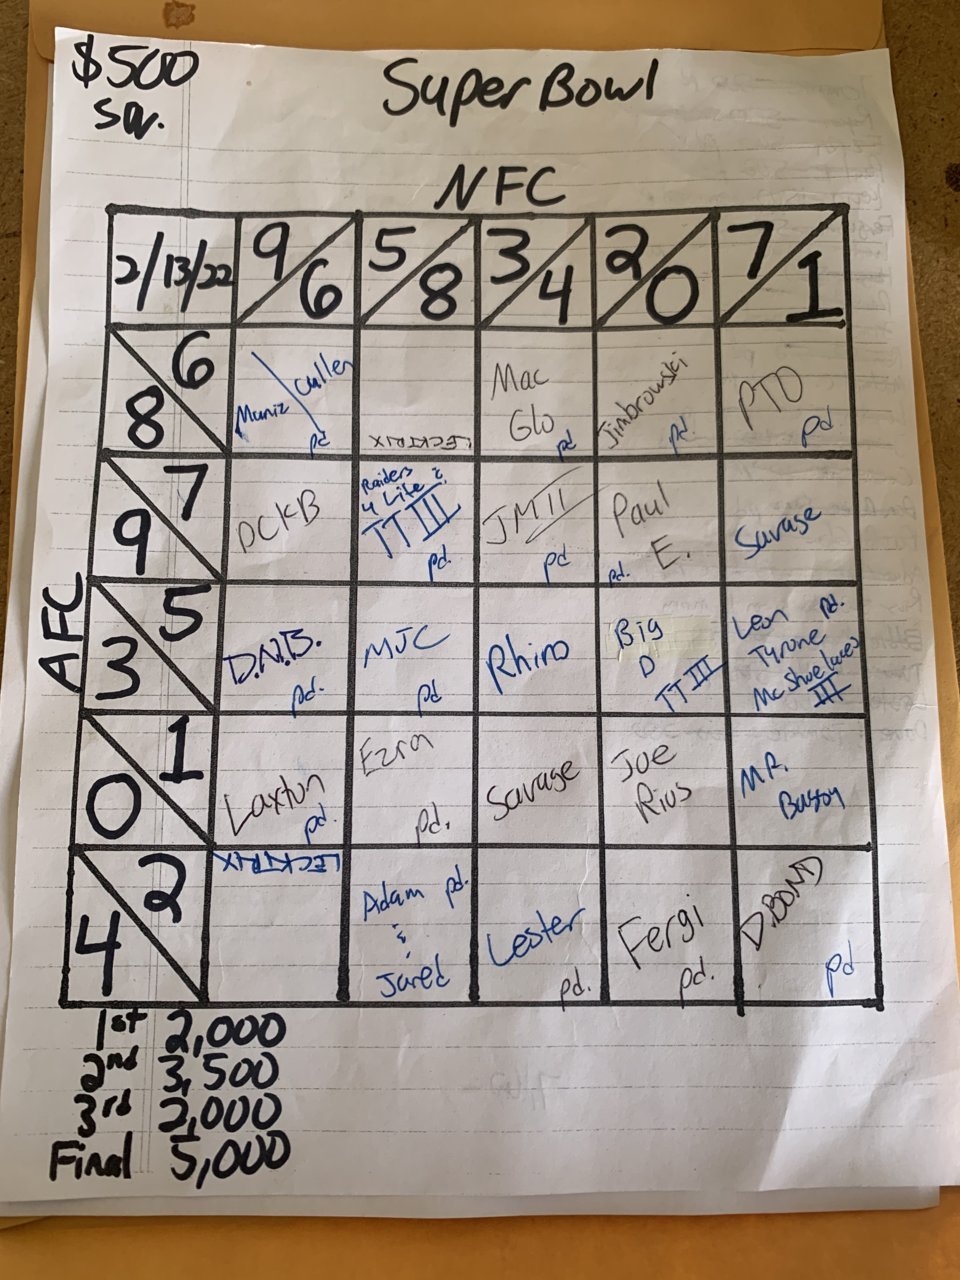 $500
sqr.
Super Bowl
NFC
2/13/22 9/6 5/8 3/4 2/0 7/1
AFC
6
8
Muniz Cullen
pd
LECKTRIX
Mac
Glo
pd
Jimbrowski
pd.
PTO
pd
7
9
DCKB
Raiders
4 Life &
TT III
pd.
JM II
pd
Paul
E.
pd.
Savage
5
3
D.N.B.
pd.
MJC
pd
Rhino
Big
D
TT III
Leon pd.
Tyrone
McShoelaces
III
1
0
Laxton
pd.
Ezra
pd.
Savage
Joe
Rius
MR.
2
4
LECKTRIX
Adam pd.
&
Jared
Lester
pd.
Fergi
pd.
D.BOND
pd
1st 2,000
2nd 3,500
3rd 2,000
Final 5,000